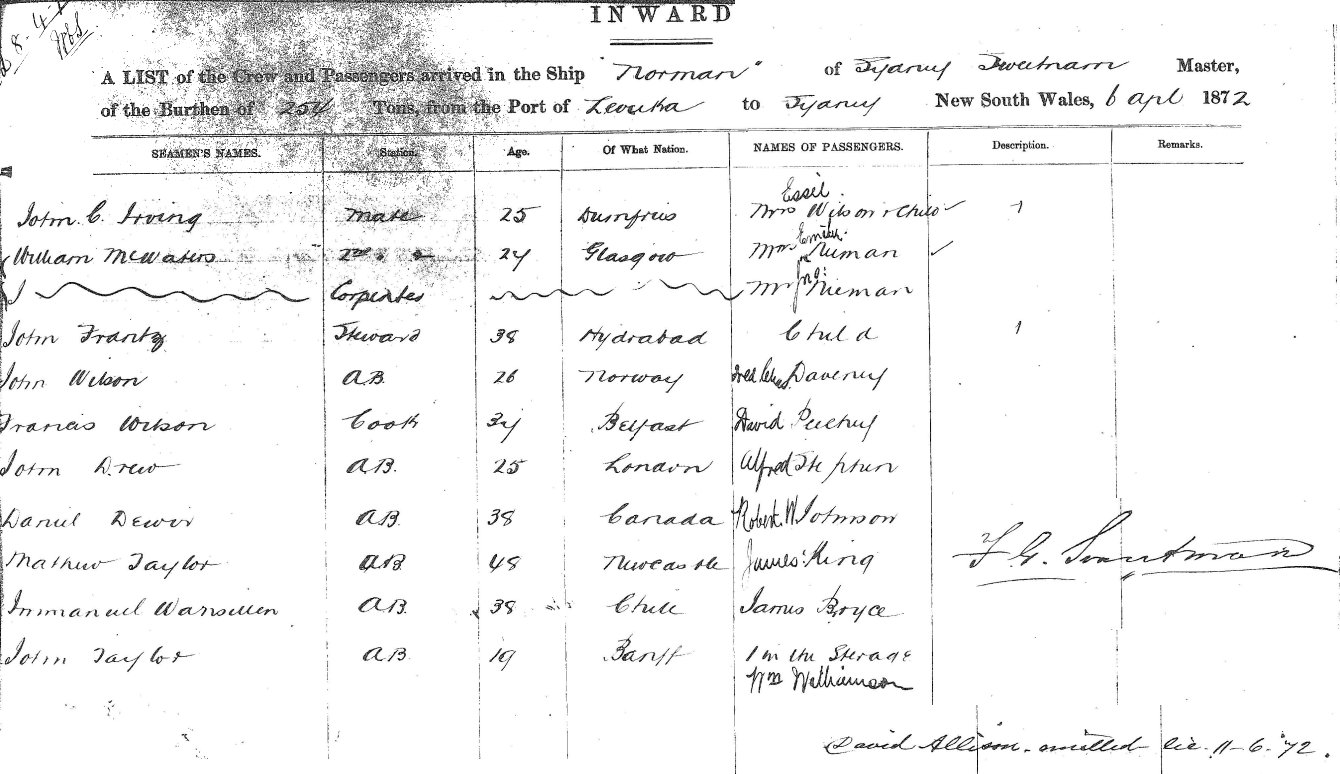 INWARD
A LIST of the Crew and Passengers arrived in the Ship "Norman" of Sydney Sweetnam Master,
of the Burthen of 254 Tons, from the Port of Levuka to Sydney New South Wales, 6 Apl 1872
SEAMEN'S NAMES. Station. Age. Of What Nation. NAMES OF PASSENGERS. Description. Remarks.
Essil.
John C. Irving Mate 25 Dumfries Mrs Wilson & Child 1
Emilie
William McWaters 2nd " 24 Glasgow Mrs Nieman
Jno
Carpenter Mr Nieman
John Frantz Steward 38 Hydrabad Child 1
John Wilson A.B. 26 Norway Daveney
Francis Wilson Cook 34 Belfast David Peechey
John Drew A.B. 25 London Alfred Stephen
Daniel Dewir A.B. 38 Canada Robert W. Johnson
Mathew Taylor A.B. 48 Newcastle James King
Immanuel A.B. 38 Chili James Bryce
John Taylor A.B. 19 Banff 1 in the Sterage
Wm Williamson
David Allison. omitted 11-6-72.